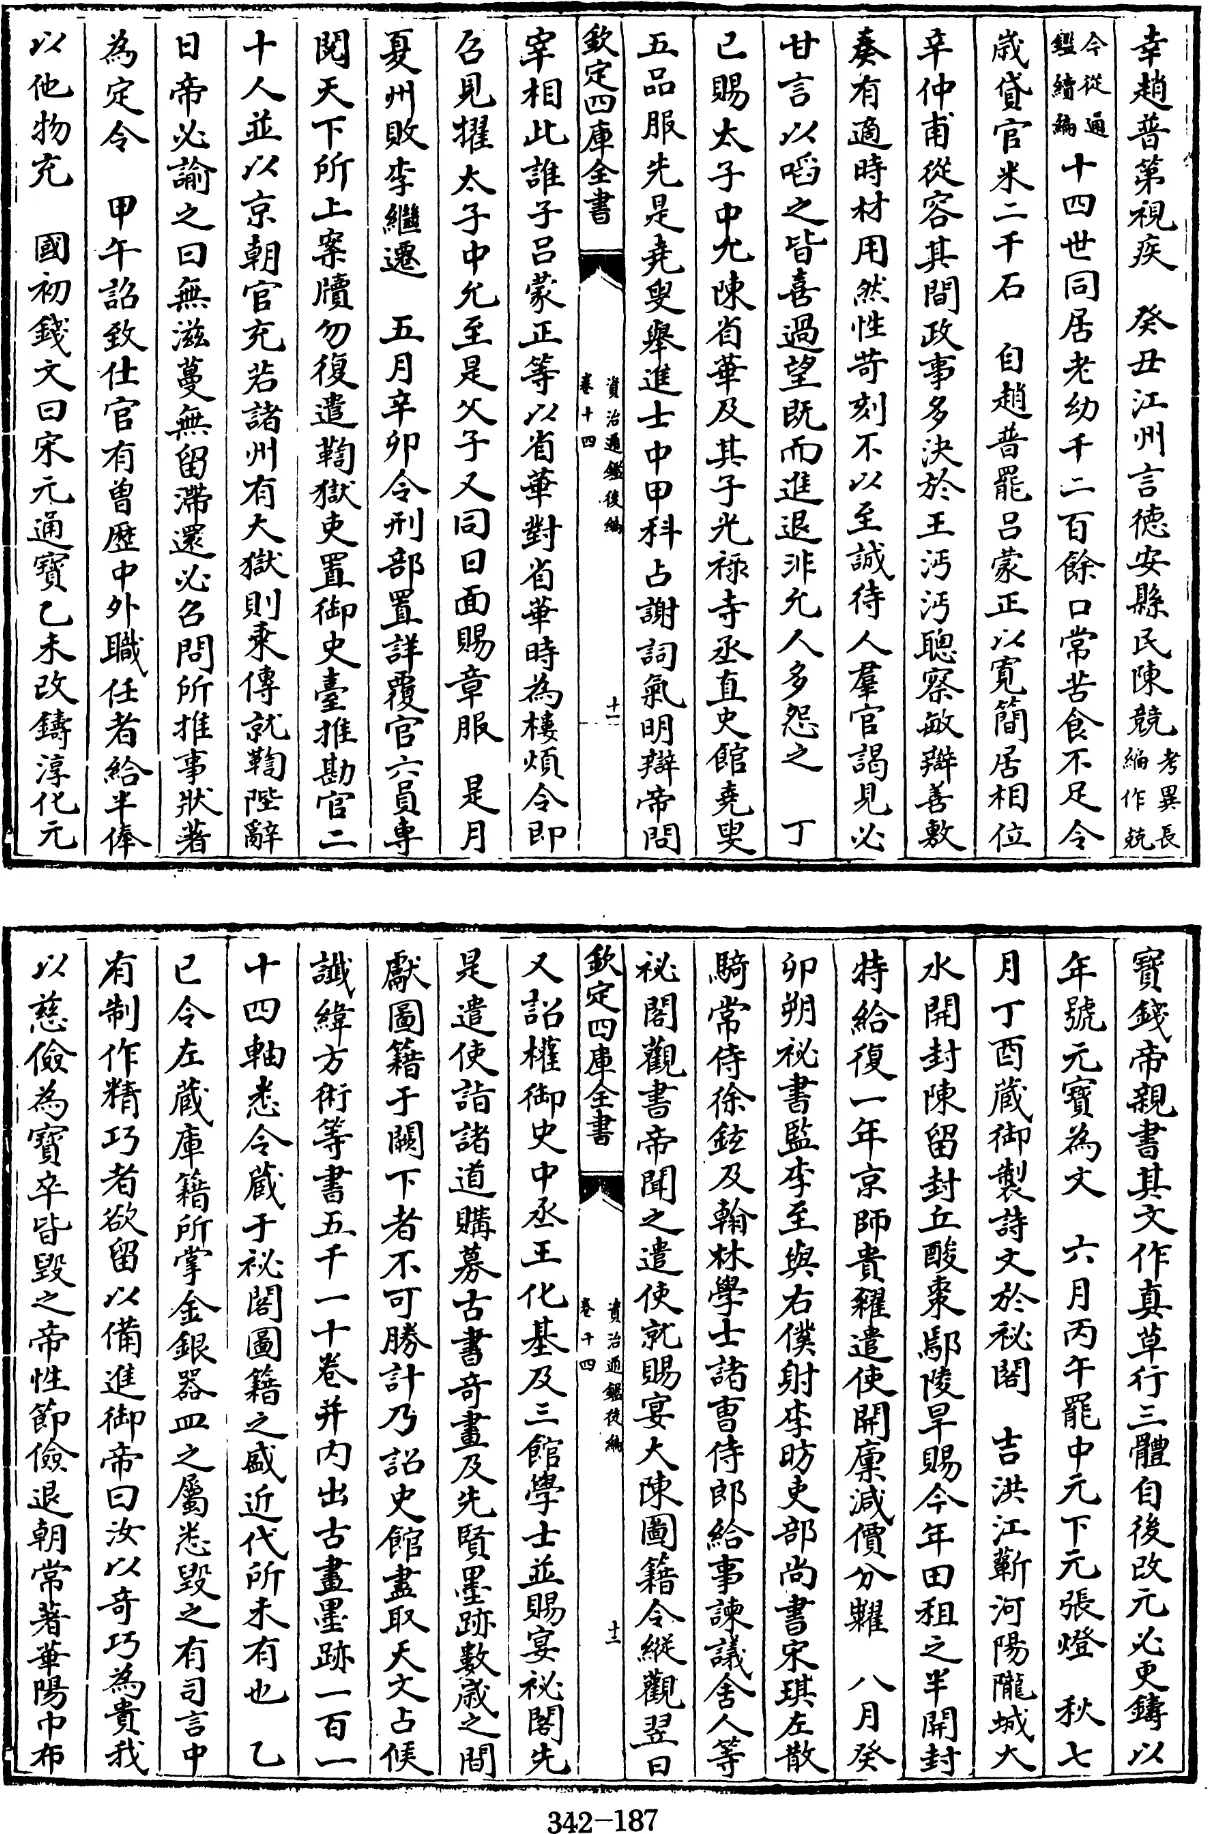 幸趙普第視疾　癸丑江州言德安縣民陳競考異長編作兢
今從通鑑續編十四世同居老幼千二百餘口常苦食不足令
歲貸官米二千石　自趙普罷呂蒙正以寬簡居相位
辛仲甫從容其間政事多決於王沔沔聰察敏辯善敷
奏有適時材用然性苛刻不以至誠待人羣官謁見必
甘言以啗之皆喜過望既而進退非允人多怨之　丁
已賜太子中允陳省華及其子光祿寺丞直史館堯叟
五品服先是堯叟舉進士中甲科占謝詞氣明辯帝問
欽定四庫全書
資治通鑑後編
卷十四
十一
宰相此誰子呂蒙正等以省華對省華時為樓煩令即
召見擢太子中允至是父子又同日面賜章服　是月
夏州敗李繼遷　五月辛卯令刑部置詳覆官六員專
閱天下所上案牘勿復遣鞫獄吏置御史臺推勘官二
十人並以京朝官充若諸州有大獄則乘傳就鞫陛辭
日帝必諭之曰無滋蔓無留滯還必召問所推事狀著
為定令　甲午詔致仕官有曾歷中外職任者給半俸
以他物充　國初錢文曰宋元通寶乙未改鑄淳化元
寶錢帝親書其文作真草行三體自後改元必更鑄以
年號元寶為文　六月丙午罷中元下元張燈　秋七
月丁酉藏御製詩文於祕閣　吉洪江蘄河陽隴城大
水開封陳留封丘酸棗鄢陵旱賜今年田租之半開封
特給復一年京師貴糴遣使開廩減價分糶　八月癸
卯朔祕書監李至與右僕射李昉吏部尚書宋琪左散
騎常侍徐鉉及翰林學士諸曹侍郎給事諫議舍人等
祕閣觀書帝聞之遣使就賜宴大陳圖籍令縱觀翌日
欽定四庫全書
資治通鑑後編
卷十四
十二
又詔權御史中丞王化基及三館學士並賜宴祕閣先
是遣使詣諸道購募古書奇畫及先賢墨跡數歲之間
獻圖籍于闕下者不可勝計乃詔史館盡取天文占候
讖緯方術等書五千一十卷并內出古畫墨跡一百一
十四軸悉令藏于祕閣圖籍之盛近代所未有也　乙
已令左藏庫籍所掌金銀器皿之屬悉毀之有司言中
有制作精巧者欲留以備進御帝曰汝以奇巧為貴我
以慈儉為寶卒皆毀之帝性節儉退朝常著華陽巾布
342-187